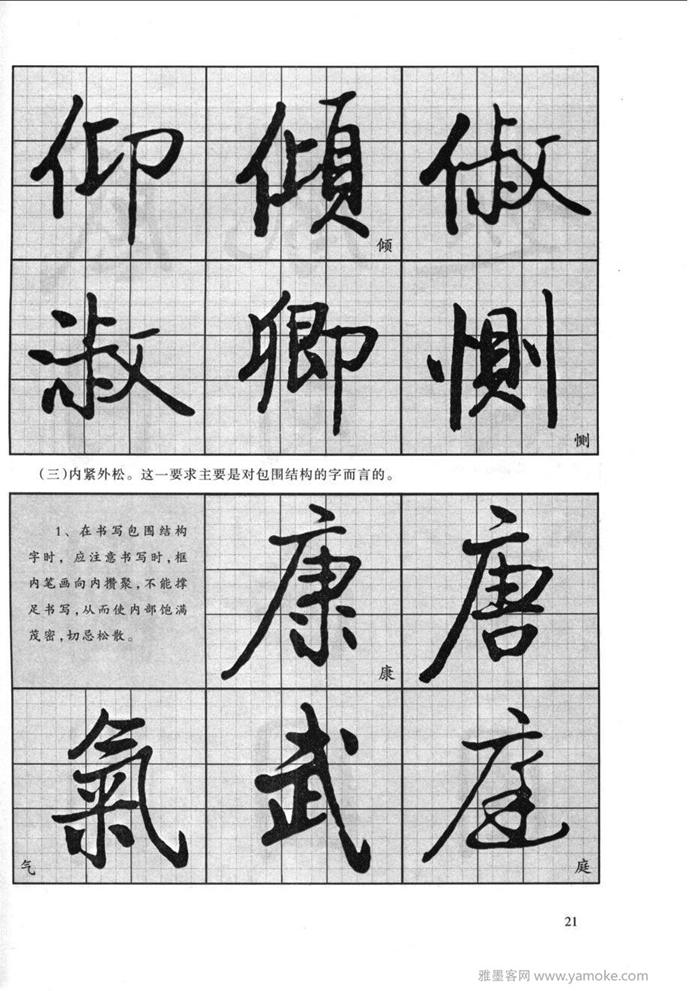 仰 傾 俶
倾
淑 卿 惻
恻
(三)内紧外松。这一要求主要是对包围结构的字而言的。
1、在书写包围结构
字时，应注意书写时,框
内笔画向内攒聚,不能撑
足书写,从而使内部饱满
茂密,切忌松散。
康 唐
康
氣 武 庭
气 庭
21
雅墨客网 www.yamoke.com